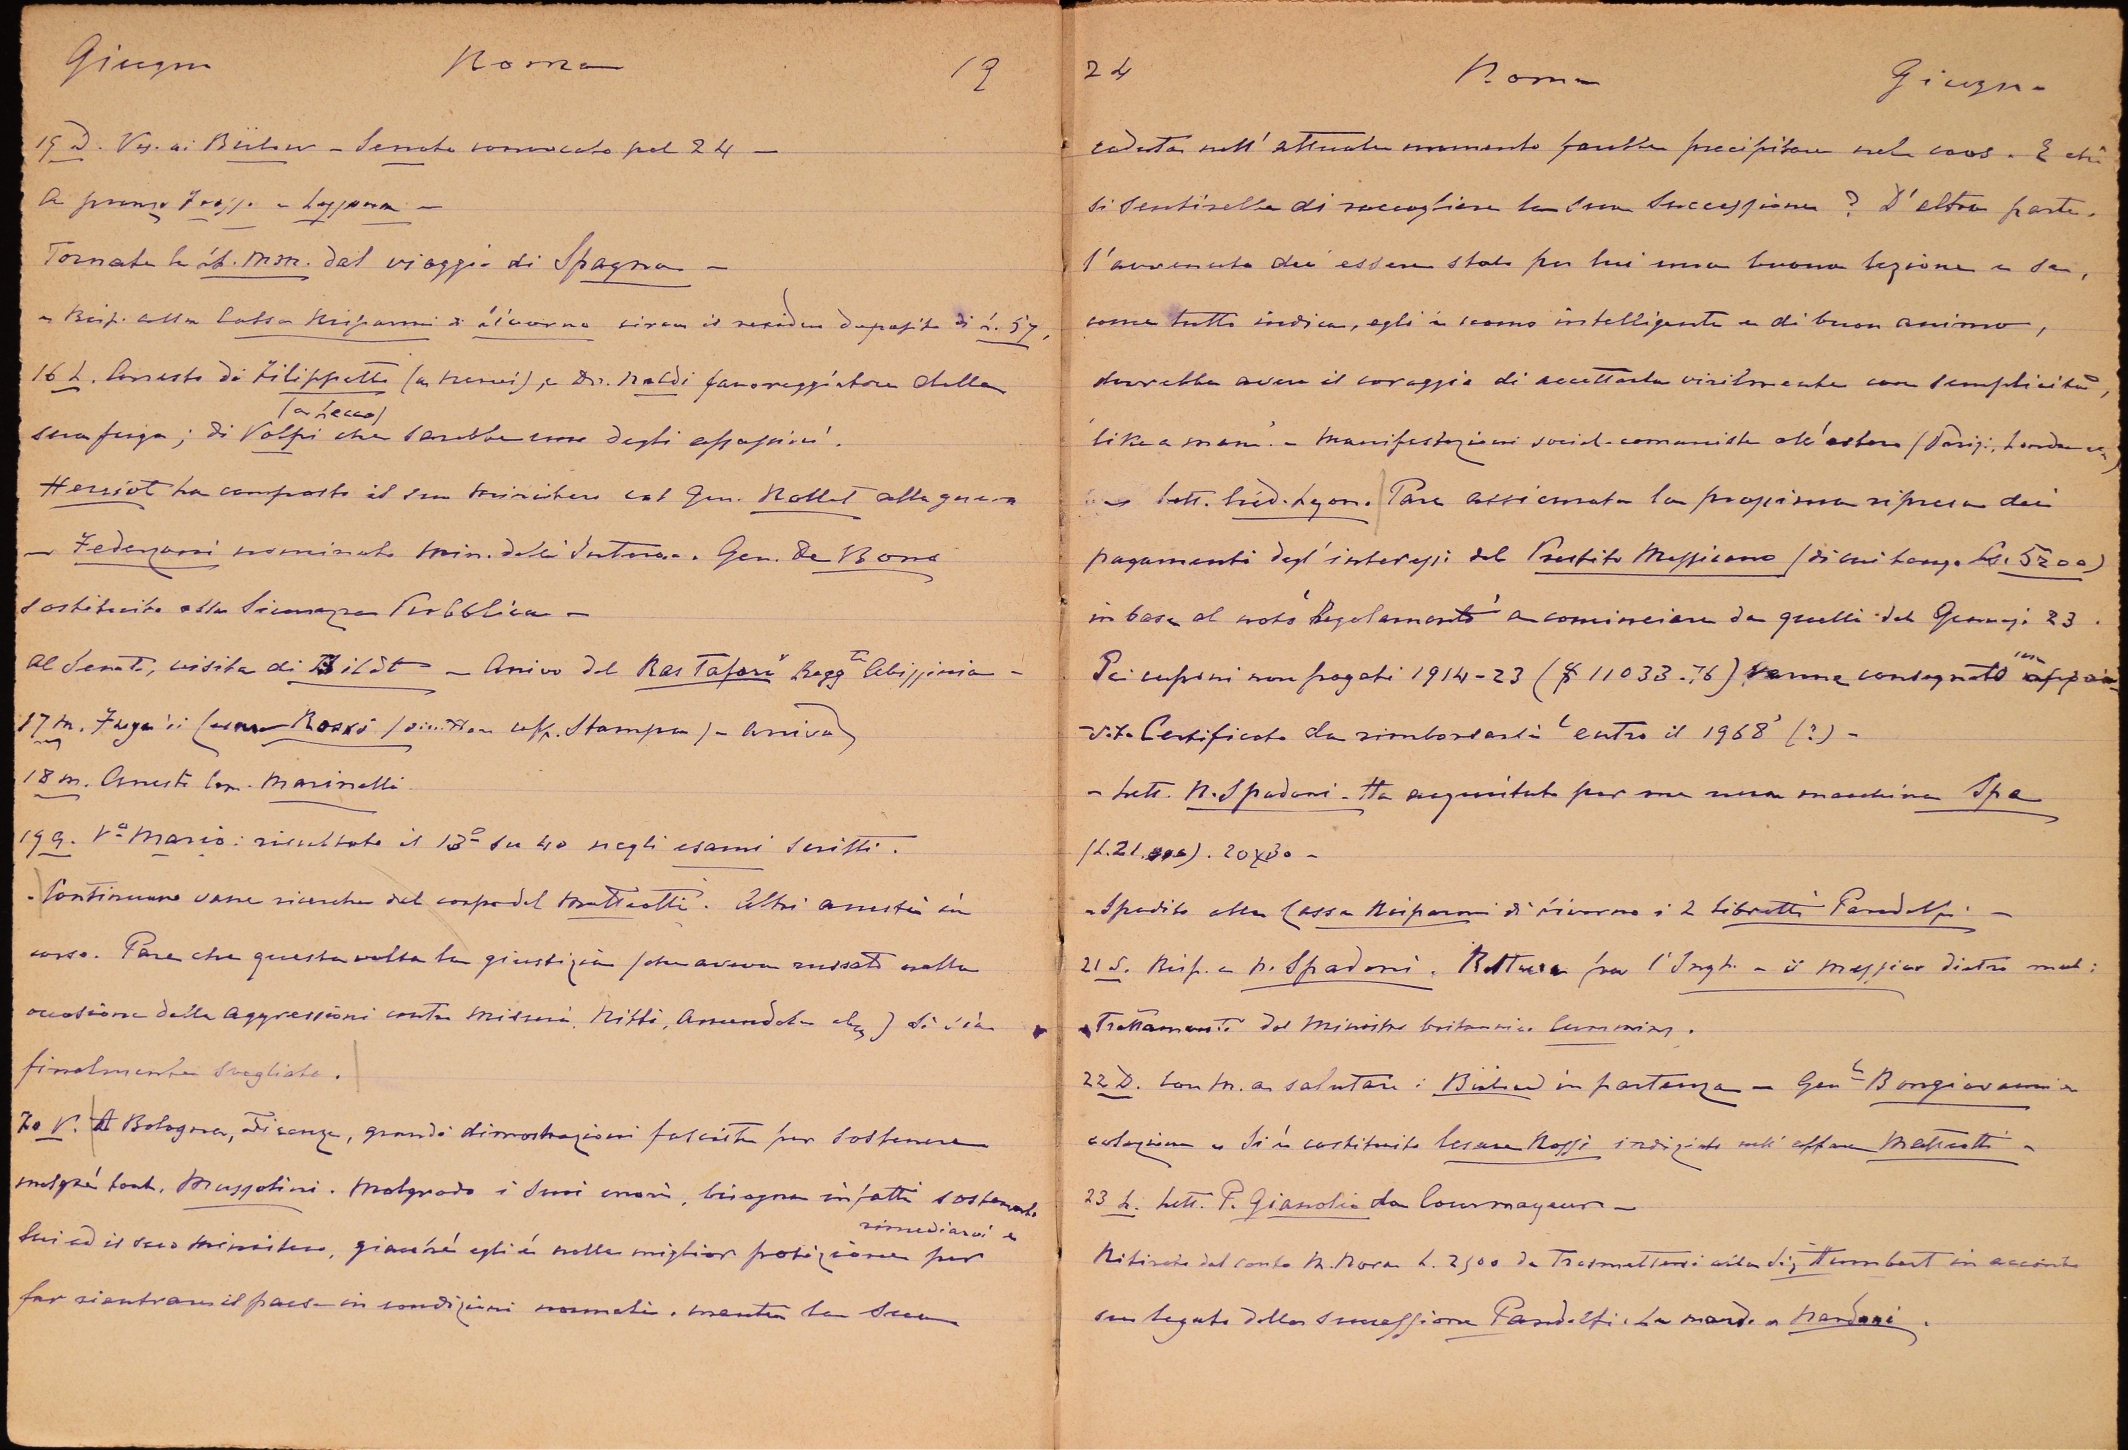 Giugno Roma 19
15 D. Vis. ai Bülow - Senato convocato pel 24 -
a pranzo
Tornate le dal viaggio di Spagna -
- Risp. alla Cassa Risparmi di Livorno circa il residuo deposito di £. 57.
16 L. Arresto di Filippelli (a Nervi), e Dr. Naldi favoreggiatore della
(a Lecco)
sua fuga; di Volpi che sarebbe uno degli assassini.
Herriot ha composto il suo Ministero col Gen. Nollet alla guerra
- Federzoni nominato Min. dell'Interno. Gen. De Bono
sostituito alla Sicurezza Pubblica -
Al Senato, visita di Bildt - Arrivo del Ras Tafari Regg.te Abissinia -
17 m. Fuga di Rossi Uff. Stampa) -
18 m. Arresto Com. Marinelli.
19 g. Va Mario: risultato il 13o su 40 negli esami scritti.
- Continuano vane ricerche del corpo del Matteotti. Altri arresti in
corso. Pare che questa volta la giustizia (che aveva russato nella
occasione delle aggressioni contro Misuri, Nitti, Amendola etc) si sia
finalmente svegliata.
20 V. A Bologna, Firenze, grandi dimostrazioni fasciste per sostenere
malgré tout, Mussolini. Malgrado i suoi errori, bisogna infatti sostenere
rimediarvi e
lui ed il suo Ministero, giacché egli è nella miglior posizione per
far rientrare il paese in condizioni normali, mentre la sua
24 Roma Giugno
caduta nell'attuale momento farebbe precipitare nel caos. E chi
si sentirebbe di raccogliere la sua successione? D'altra parte,
l'avvenuto dev'essere stato per lui una buona lezione e se,
come tutto indica, egli è uomo intelligente e di buon animo,
dovrebbe avere il coraggio di accettarla virilmente con semplicità,
'like a man'. - Manifestazioni social-comuniste all'estero (Parigi, Londra etc)
- Lett. Créd. Lyon. Pare assicurata la prossima ripresa dei
pagamenti degl'interessi del Prestito Messicano (di cui tengo Ls. 5200)
in base al noto 'Regolamento' a cominciare da quelli del Gennaio 23.
Pei cuponi non pagati 1914-23 ($ 11033.76) venne consegnato un
Certificato da rimborsarsi 'entro il 1968' (?) -
- Lett. N. Spadoni - Ha acquistato per me una macchina Spa
(L.21.000). 20x30 -
- Spedito alla Cassa Risparmi di Livorno i 2 libretti Pandolfi -
21 S. Risp. a N. Spadoni. Rottura fra l'Ingh. e il Messico dietro mal-
trattamento del Ministro britannico Cummins.
22 D. Con M. a salutare i Bülow in partenza - Gen.l Bongiovanni a
colazione - Si è costituito Cesare Rossi indiziato nell'affare Matteotti -
23 L. Lett. P. Gianolio da Courmayeur -
Ritirato dal conto M. Mora L. 2500 da trasmettersi alla Sig. Humbert in acconto
suo legato della successione Pandolfi. Le mando a Nardoni.